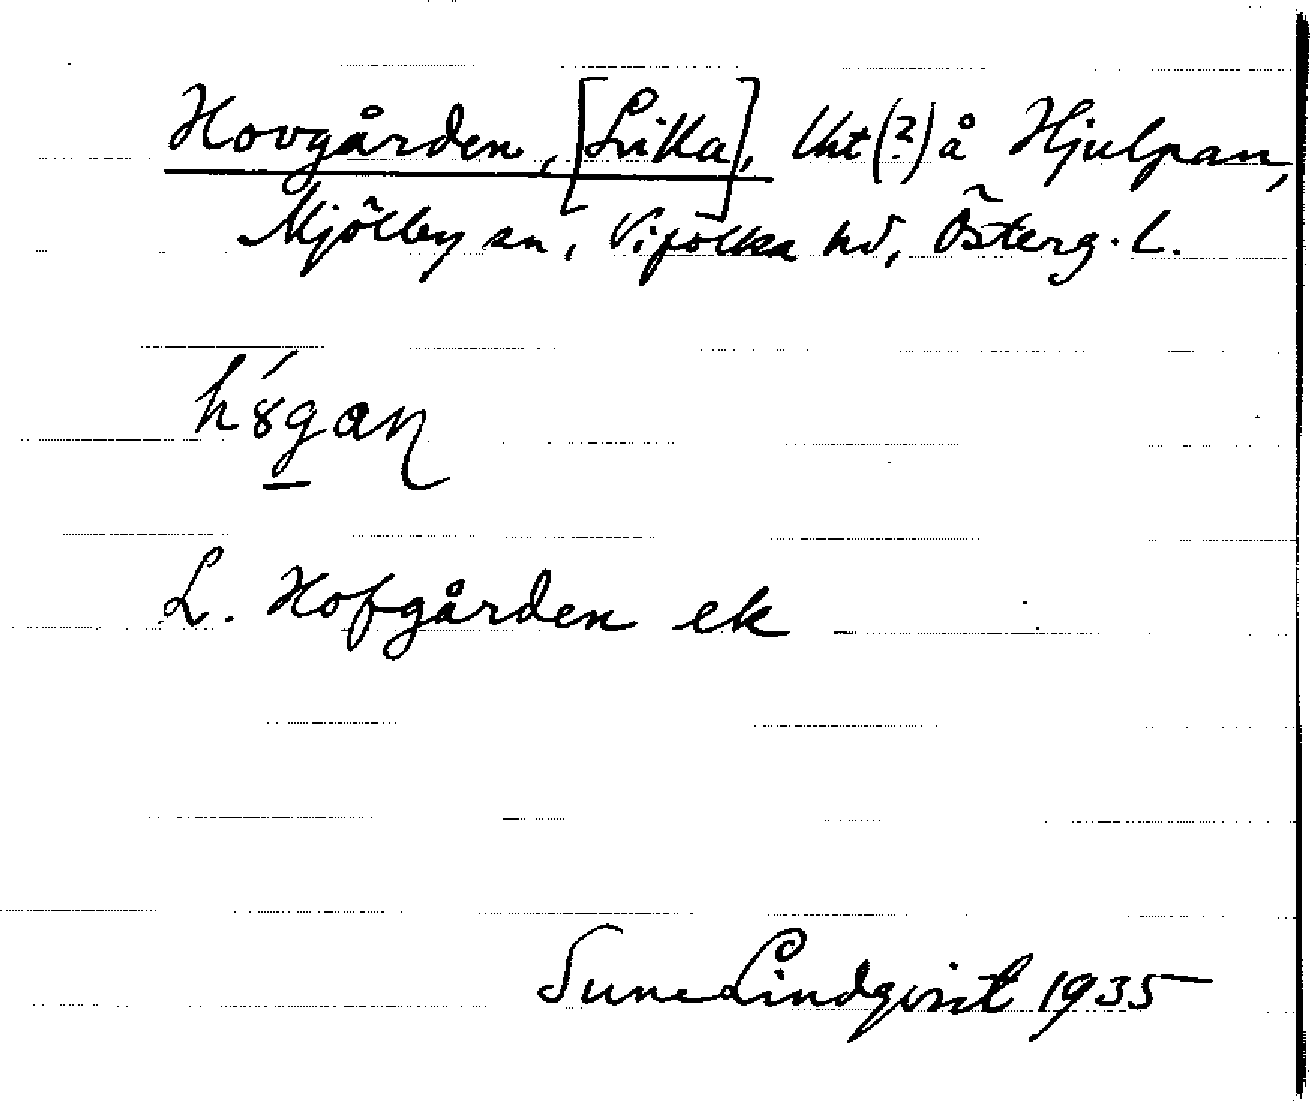 Hovgården, [Lilla], Uht (?) å Hjulpan,
Mjölby sn, Vifolka hd, Österg. L.
h8́gaɳ
L. Hofgården ek
Sune Lindqvist 1935